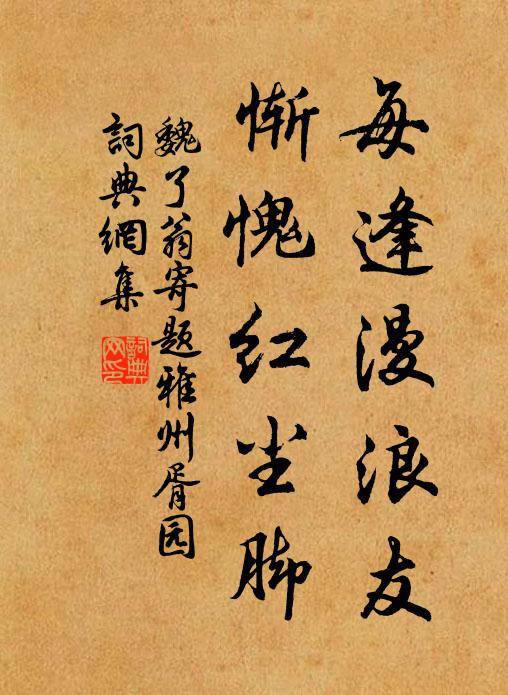 每逢漫浪友
惭愧红尘脚
魏了翁寄题雅州胥园
詞典網集
詞典網印